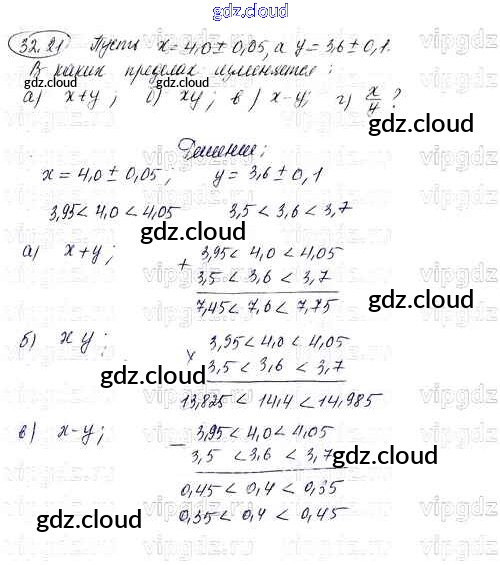 gdz.cloud
32.21 Пусть x = 4,0 ± 0,05, а y = 3,6 ± 0,1.
В каких пределах изменяется:
а) x+y; б) xy; в) x-y; г) x/y?
gdz.cloud
Решение:
x = 4,0 ± 0,05, y = 3,6 ± 0,1
gdz.cloud
3,95 < 4,0 < 4,05 3,5 < 3,6 < 3,7
gdz.cloud
а) x+y; + 3,95 < 4,0 < 4,05
3,5 < 3,6 < 3,7
7,45 < 7,6 < 7,75
gdz.cloud
б) xy; x 3,95 < 4,0 < 4,05
3,5 < 3,6 < 3,7
gdz.cloud
13,825 < 14,4 < 14,985
gdz.cloud
в) x-y; - 3,95 < 4,0 < 4,05
3,5 < 3,6 < 3,7
gdz.cloud
0,45 < 0,4 < 0,35
gdz.cloud
0,35 < 0,4 < 0,45